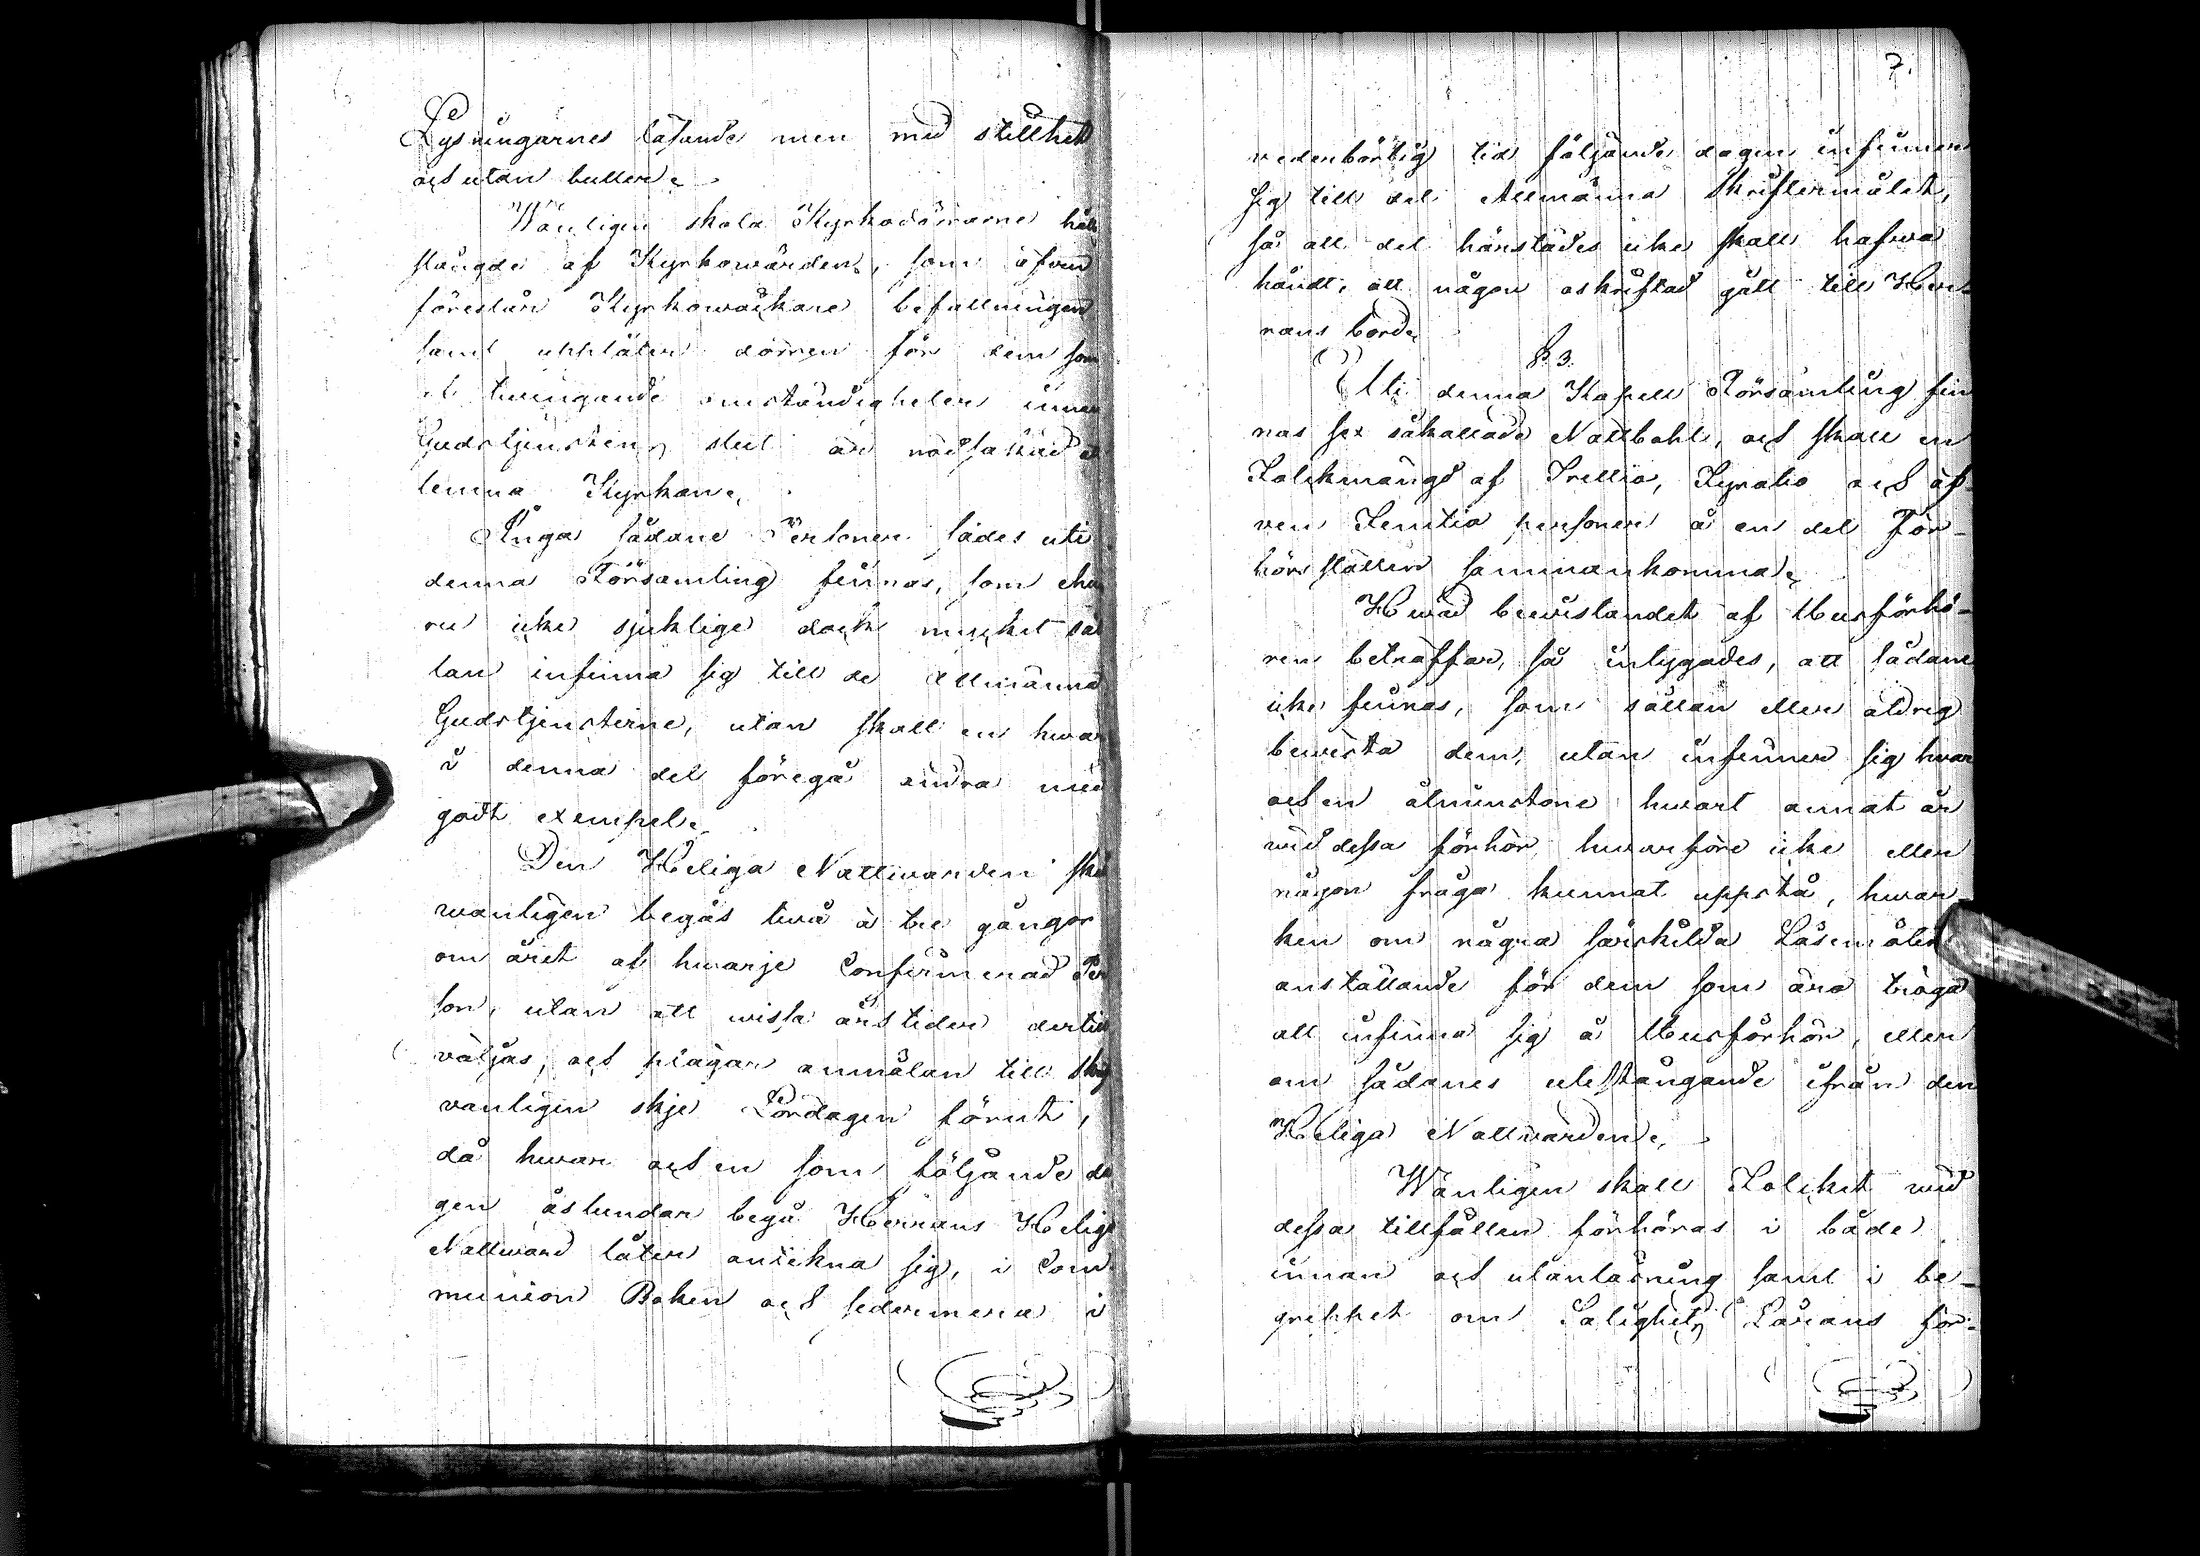 Lysningarnes läsande men med stillhet
och utan buller.
Wanligen skola Kyrkodörrarne håll
stängde af Kyrkowärden, som äfven
förestår Kyrkowäckare befattningen
samt upplåter dörren för dem som
af twingande omständigheter innan
Gudstjenstens slut är nödsakad a
lemna Kyrkan.
Inga sådane Personer sådes uti
denna Församling finnas, som ehu
ru icke sjuklige dock mycket säl
lan infinna sig till de Allmänna
Gudstjensterne, utan skall en hwar
i denna del föregå andra med
godt exempel.
Den Heliga Nattwarden skal
wanligen begås twå à tre gånger
om året af hwarje Confirmerad Per
son, utan att wissa årstider dertill
väljas, och plägar anmälan till
vanligen skje Lördagen förut,
då hwar och en som följande da
gen åstundar begå Herrans Helige
Nattward låter anteckna sig, i Com
munion Boken och sedermera i
7.
vederbörlig tid följande dagen infinner
sig till det Allmänna Skriftermålet,
så att det härstädes icke skall hafwa
händt, att någon oskriftad gått till Her-
rans bord.
§ 3.
Uti denna Kapell Församling fin
nas sex såkallade Nattbohl, och skall en
Folckmängd af Trettio, Fyratio och äf-
ven Femtio personer å en del För-
hörs ställen sammankomma.
Hwad bewistandet af Husförhö-
ren beträffar, så intygades, att sådane
icke finnas, som sällan eller aldrig
bewista dem, utan infinner sig hwar
och en åtminstone hwart annat år
wid dessa förhör, hwarföre icke eller
någon fråga kunnat uppstå, hwar-
ken om några särskilda Läsemåls
anställande för dem som äro tröga
att infinna sig å Husförhör, eller
om sådanes utestängande ifrån den
Heliga Nattwarden.
Wanligen skall Folcket wid
dessa tillfällen förhöras i både
innan och utanläsning samt i be-
greppet om Salighets Lärans för-